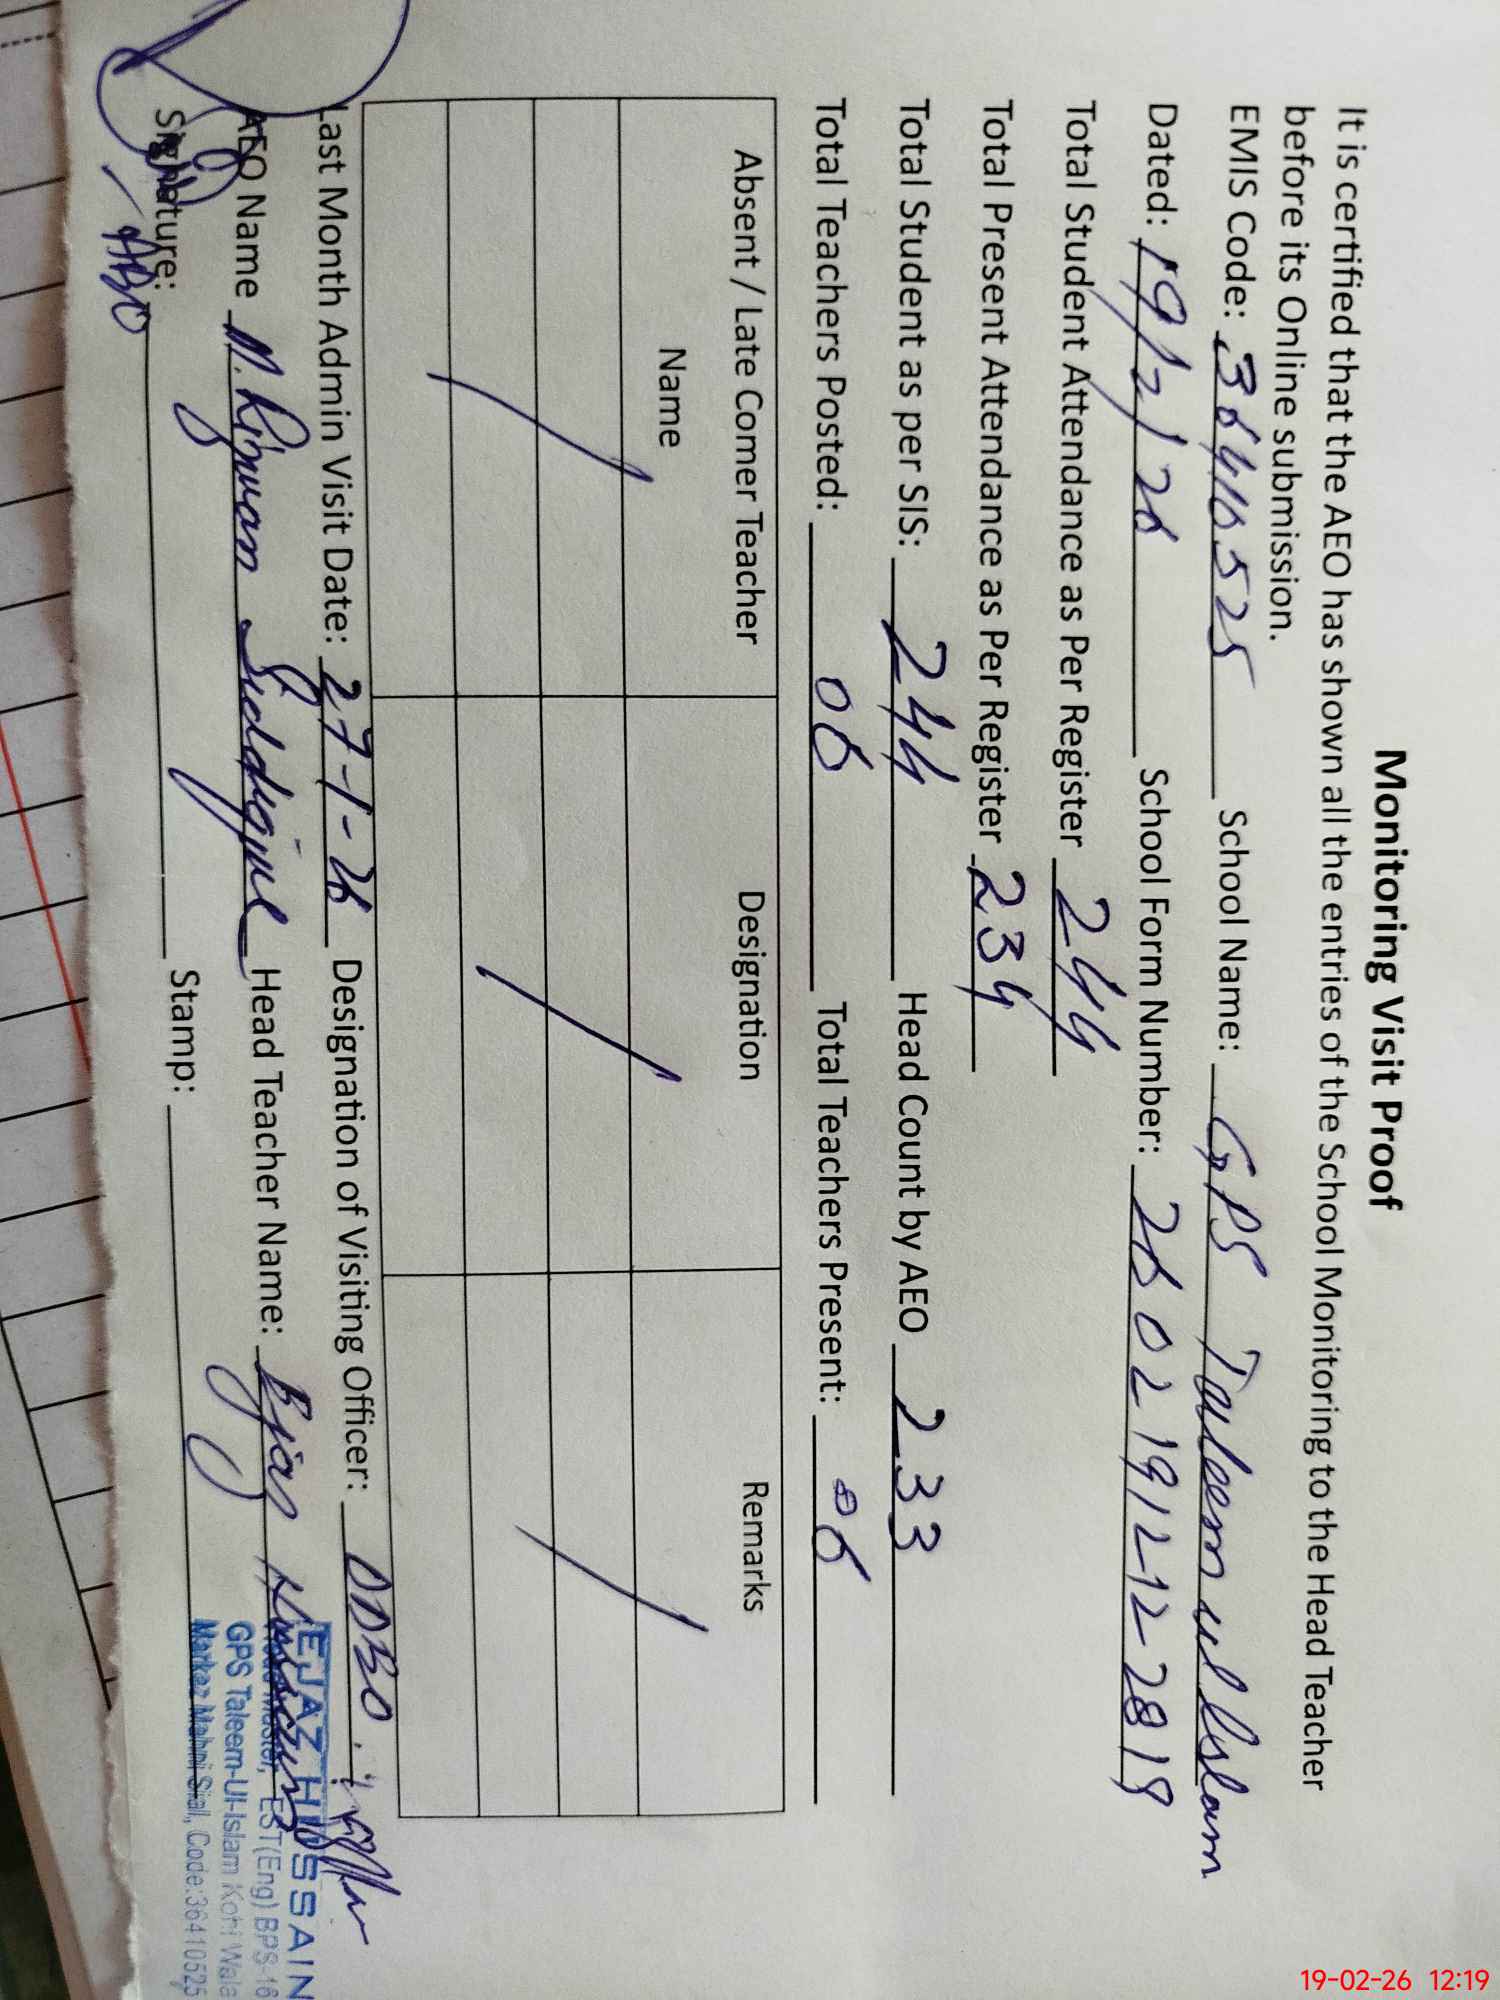 Monitoring Visit Proof
It is certified that the AEO has shown all the entries of the School Monitoring to the Head Teacher
before its Online submission.
EMIS Code: 36410525 School Name: GPS Taleem ul Islam
Dated: 19/2/26 School Form Number: 260219121228 19
Total Student Attendance as Per Register 244
Total Present Attendance as Per Register 234
Total Student as per SIS: 244 Head Count by AEO 233
Total Teachers Posted: 06 Total Teachers Present: 06
Absent / Late Comer Teacher Name Designation Remarks
Last Month Admin Visit Date: 27-1-26 Designation of Visiting Officer: DDEO
AEO Name M. Rizwan Siddique Head Teacher Name: Ejaz Hussain
Signature: AEO Stamp:
EJAZ HUSSAIN
Head Master, EST(Eng) BPS-16
GPS Taleem-Ul-Islam Kohi Wala
Markaz Mahni Sial, Code:36410525
19-02-26 12:19